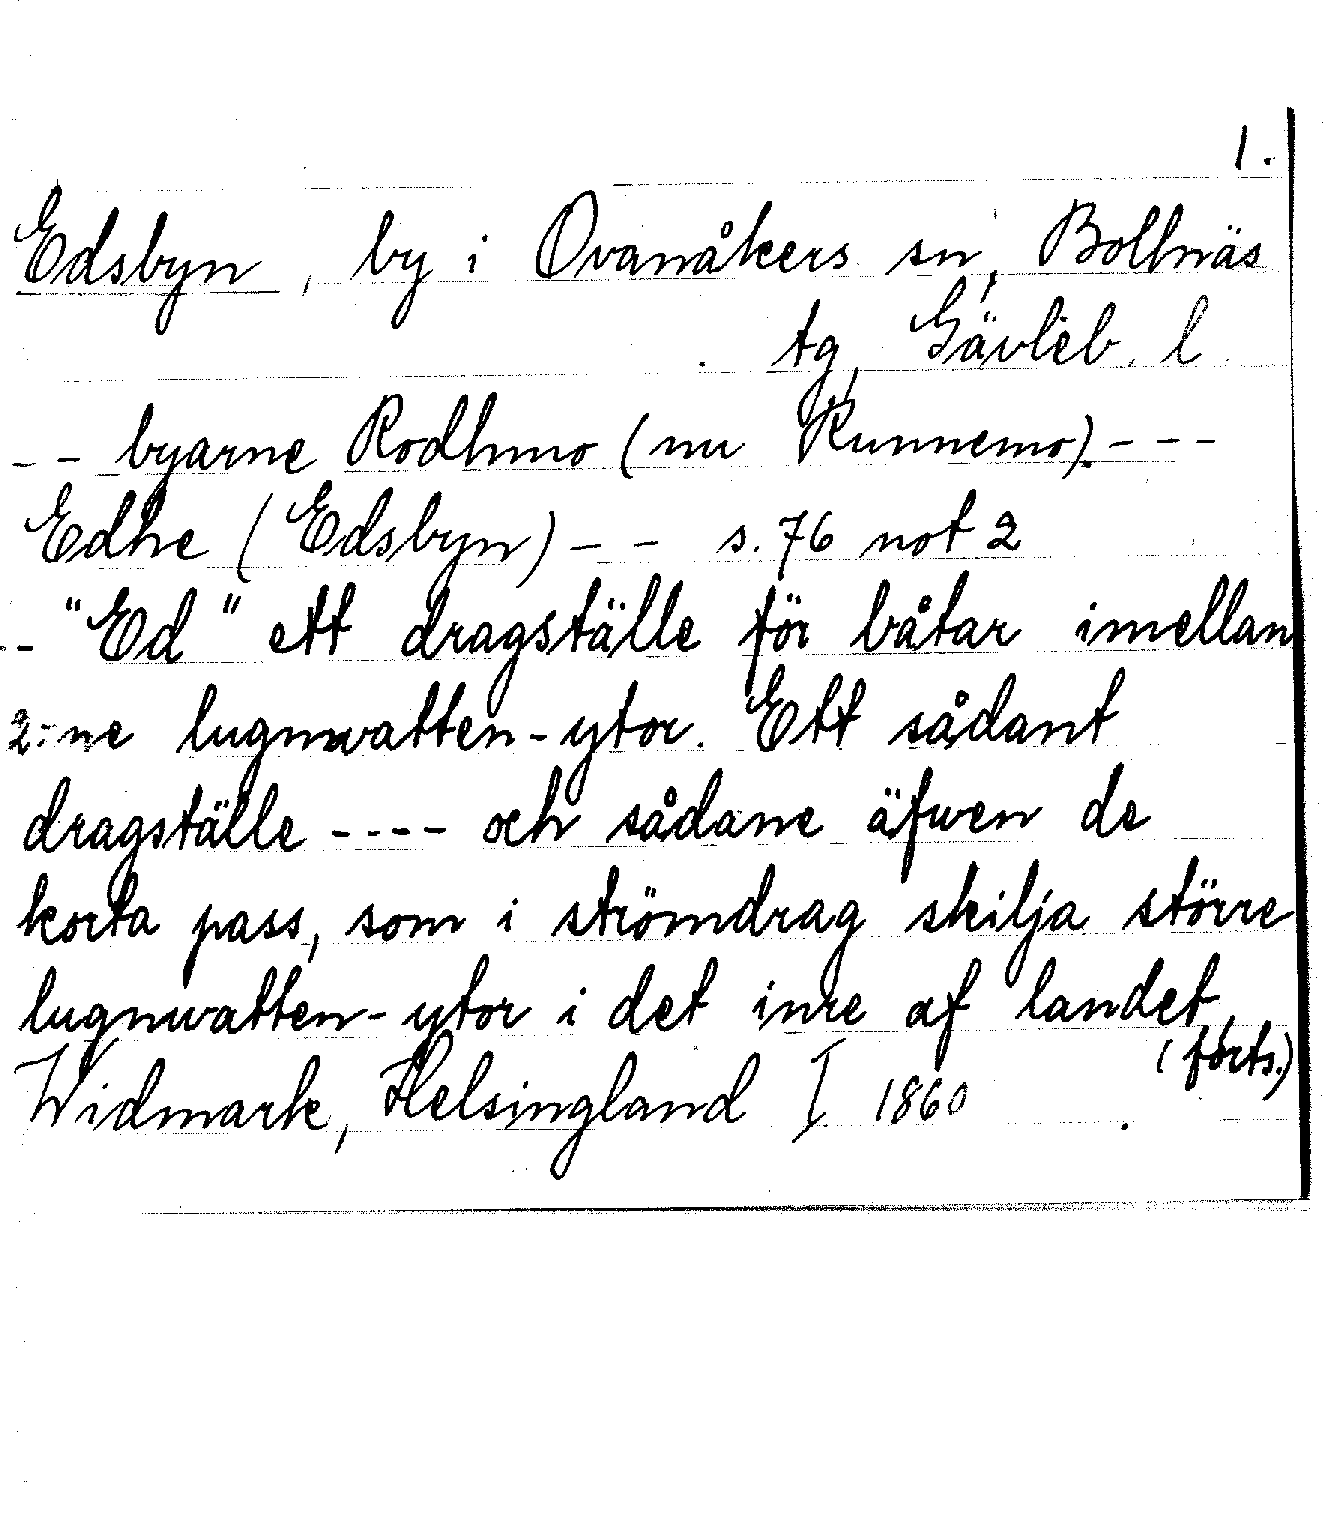 1.
Edsbyn, by i Ovanåkers sn, Bollnäs
tg, Gävleb. l
-- byarne Rodhmo (nu Runnemo). ---
Edhe (Edsbyn) -- s. 76 not 2
-- "Ed" ett dragställe för båtar imellan
2:ne lugnwatten-ytor. Ett sådant
dragställe ---- och sådane äfwen de
korta pass, som i strömdrag skilja större
lugnwatten-ytor i det inre af landet.
(forts.)
Widmark, Helsingland I 1860